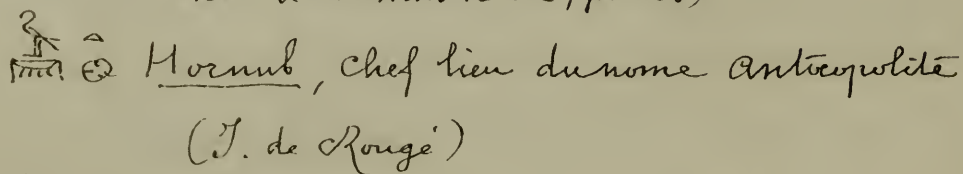 Hornub, chef lieu du nome Antæopolite
(J. de Rougé)